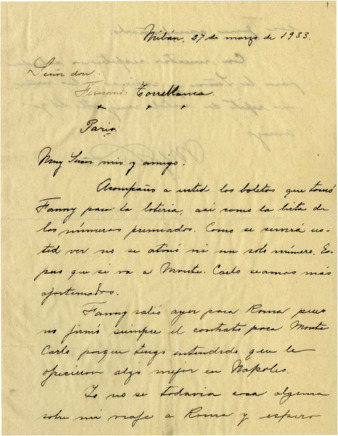 Milán, 27 de marzo de 1933.
Señor don
Fernando Torreblanca
París
Muy Señor mío y amigo:
Acompaño a usted los boletos que tomó
Fanny para la lotería, así como la lista de
los números premiados. Como se servirá us-
ted ver no se atinó ni un solo número. Es-
pero que si va a Monte-Carlo seamos más
afortunados.
Fanny salió ayer para Roma pues
no firmó siempre el contrato para Monte
Carlo porque tengo entendido que le
ofrecieron algo mejor en Nápoles.
Yo no sé todavía cosa alguna
sobre mi viaje a Roma y espero